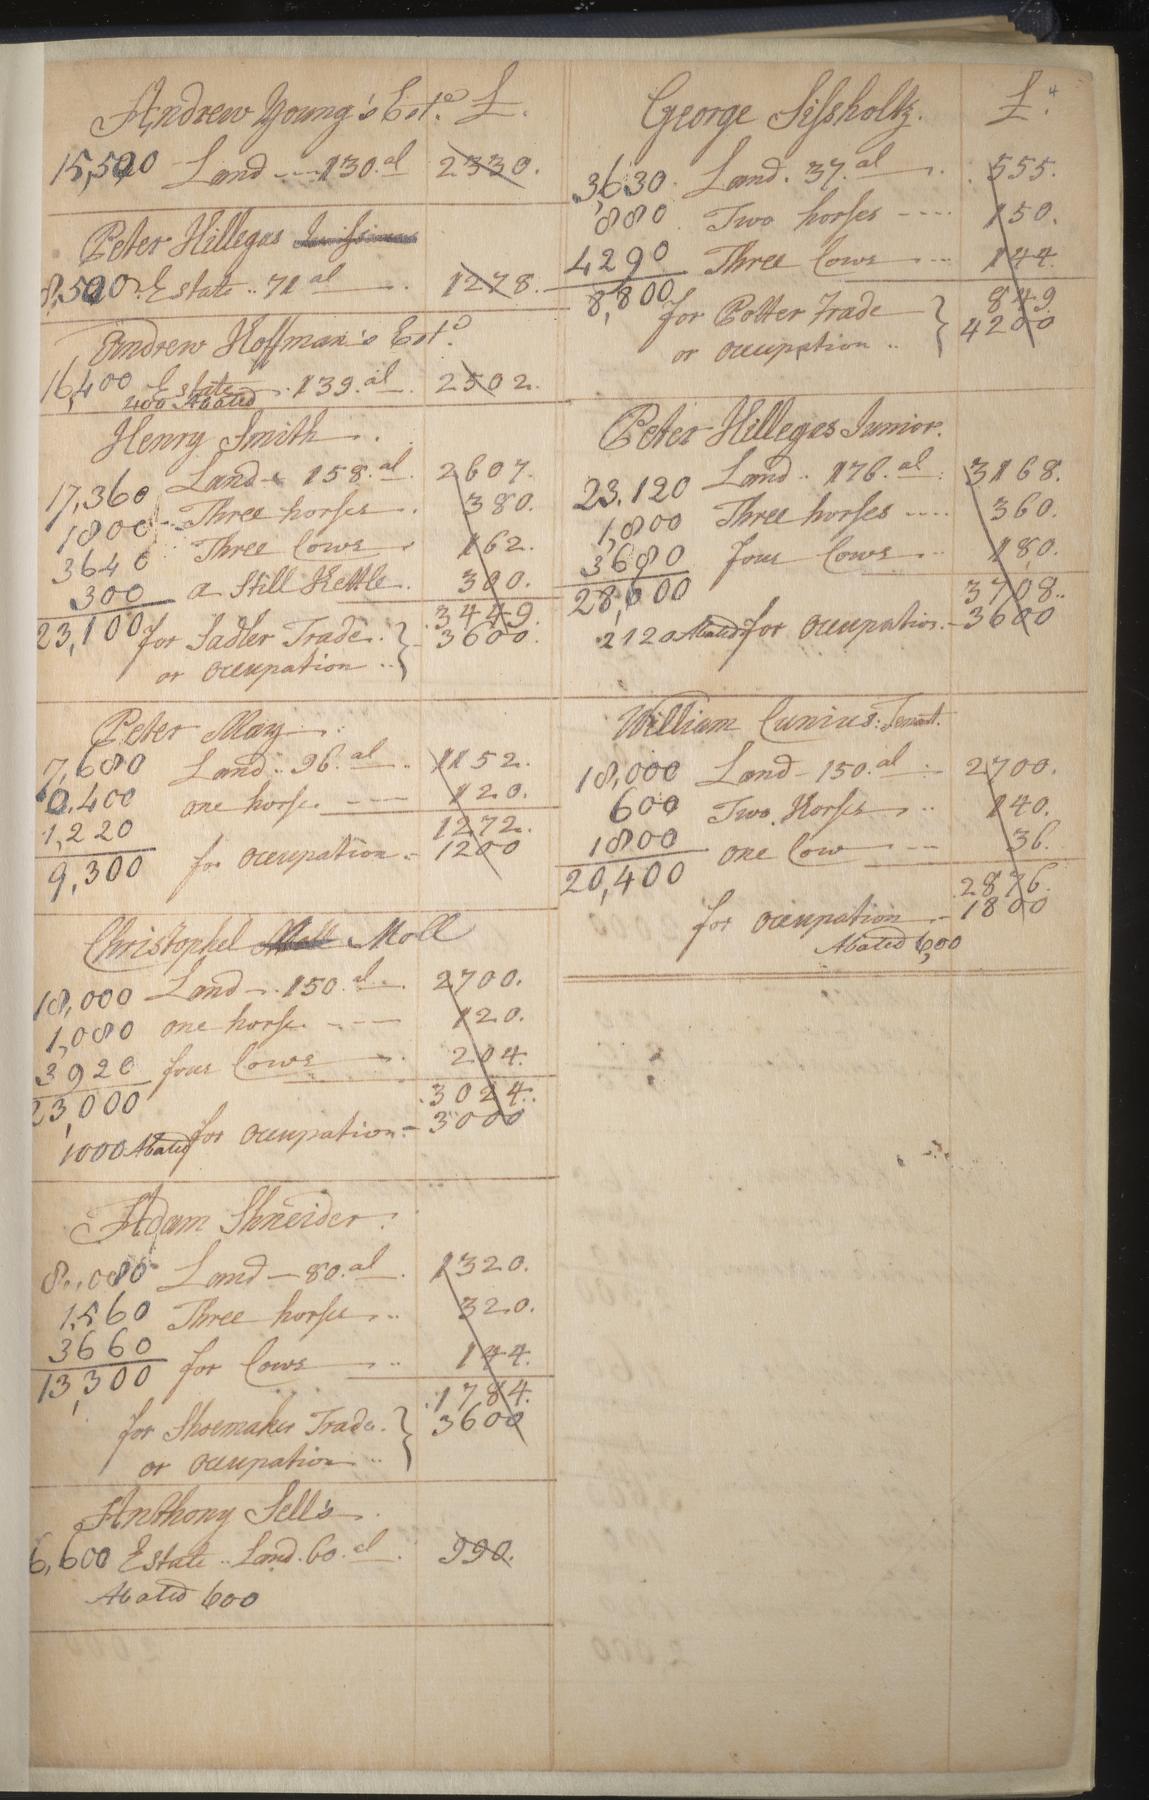 Andrew Young's Est.ͤ £.
15,500 Land 130.al 2330.
Peter Hilleges
8,500 Estate .. 71 al 1278.
Andrew Hoffman's Est.ͤ
16,400 Estate .. 139.al 2502.
400 Abated
Henry Smith
17,360 Land 158.al 2607.
1800 Three horses 380.
3640 Three Cows 162.
300 a Still Kettle 300.
23,100 3449.
for Sadler Trade 3600.
or occupation ..
Peter May
7,680 Land .. 96.al 1152.
0,400 one horse 120.
1,220 1272.
9,300 for occupation 1200
Christophel Moll
18,000 Land 150.al 2700.
1,080 one horse 120.
3920 four Cows 204.
23,000 3024.
1000 Abated for occupation 3000
Adam Shneider
8,080 Land 80.al 1320.
1,560 Three horses 320.
3660 for Cows 144.
13,300 1784.
for Shoemaker Trade 3600
or occupation ..
Anthony Sell's
6,600 Estate .. Land. 60.al 990.
Abated 600
George Sissholtz. £. 4
3,630. Land. 37.al 555.
880 Two horses 150.
4290 Three Cows 144.
8,800 849
for Potter Trade 4200
or occupation ..
Peter Hilleges Junior.
23,120 Land .. 176.al 3168.
1,800 Three horses 360.
3680 four Cows 180.
28,600 3708.
2120 Abated for occupation 3600
William Cunius: Tenant.
18,000 Land 150.al 2700.
600 Two Horses 140.
1800 one Cow 36.
20,400 2876.
for occupation 1800
Abated 600